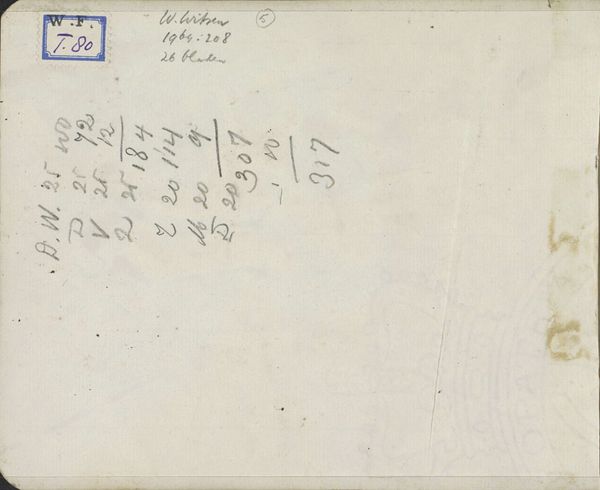 W.F.
T. 80
W. Witsen 5
1964:208
26 bladen
D. W. 25 100
D 25 72
V 25 12
25 184
Z 20 114
20 9
D 20 307
10
317